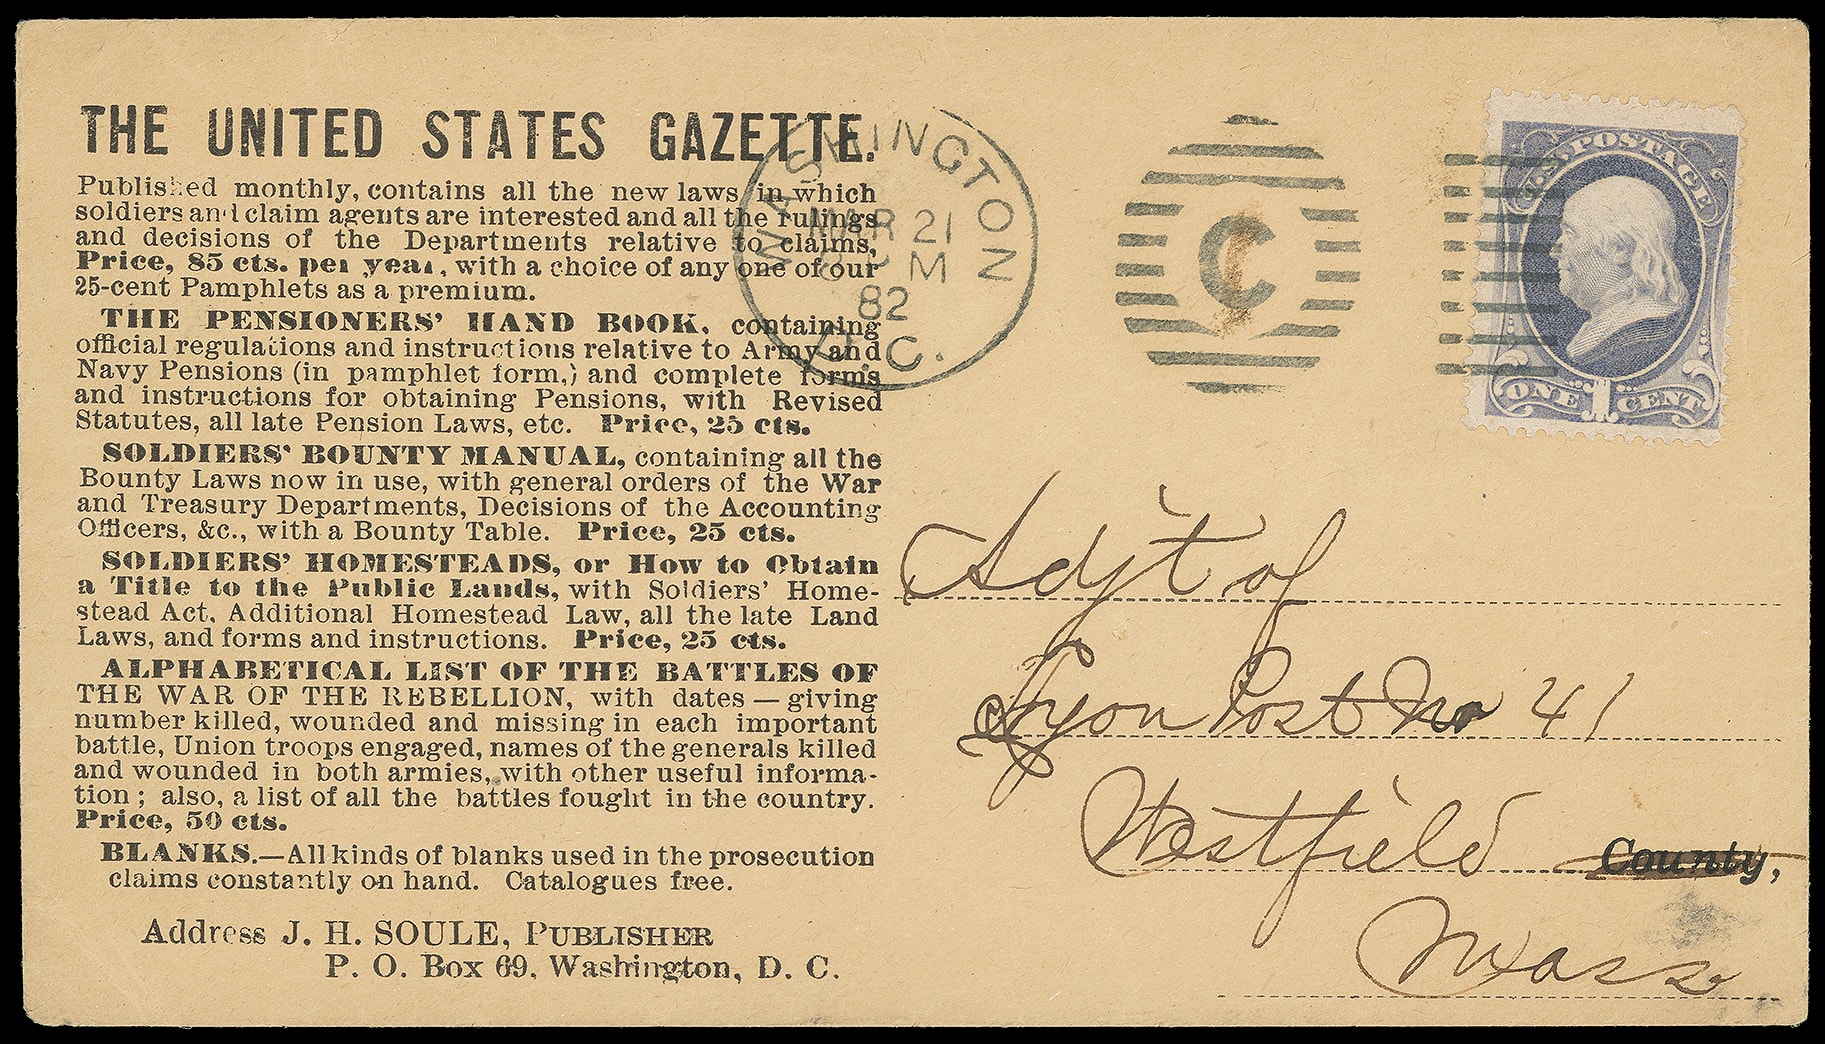 THE UNITED STATES GAZETTE.
Published monthly, contains all the new laws in which
soldiers and claim agents are interested and all the rulings
and decisions of the Departments relative to claims,
Price, 85 cts. per year, with a choice of any one of our
25-cent Pamphlets as a premium.
THE PENSIONERS' HAND BOOK, containing
official regulations and instructions relative to Army and
Navy Pensions (in pamphlet form,) and complete forms
and instructions for obtaining Pensions, with Revised
Statutes, all late Pension Laws, etc. Price, 25 cts.
SOLDIERS' BOUNTY MANUAL, containing all the
Bounty Laws now in use, with general orders of the War
and Treasury Departments, Decisions of the Accounting
Officers, &c., with a Bounty Table. Price, 25 cts.
SOLDIERS' HOMESTEADS, or How to Obtain
a Title to the Public Lands, with Soldiers' Home-
stead Act, Additional Homestead Law, all the late Land
Laws, and forms and instructions. Price, 25 cts.
ALPHABETICAL LIST OF THE BATTLES OF
THE WAR OF THE REBELLION, with dates — giving
number killed, wounded and missing in each important
battle, Union troops engaged, names of the generals killed
and wounded in both armies, with other useful informa-
tion; also, a list of all the battles fought in the country.
Price, 50 cts.
BLANKS.—All kinds of blanks used in the prosecution
claims constantly on hand. Catalogues free.
Address J. H. SOULE, PUBLISHER
P. O. Box 69, Washington, D. C.
WASHINGTON
MAR 21
M
82
D.C.
C
U.S. POSTAGE
ONE 1 CENT
Adj't of
Lyon Post No 41
Westfield County,
Mass